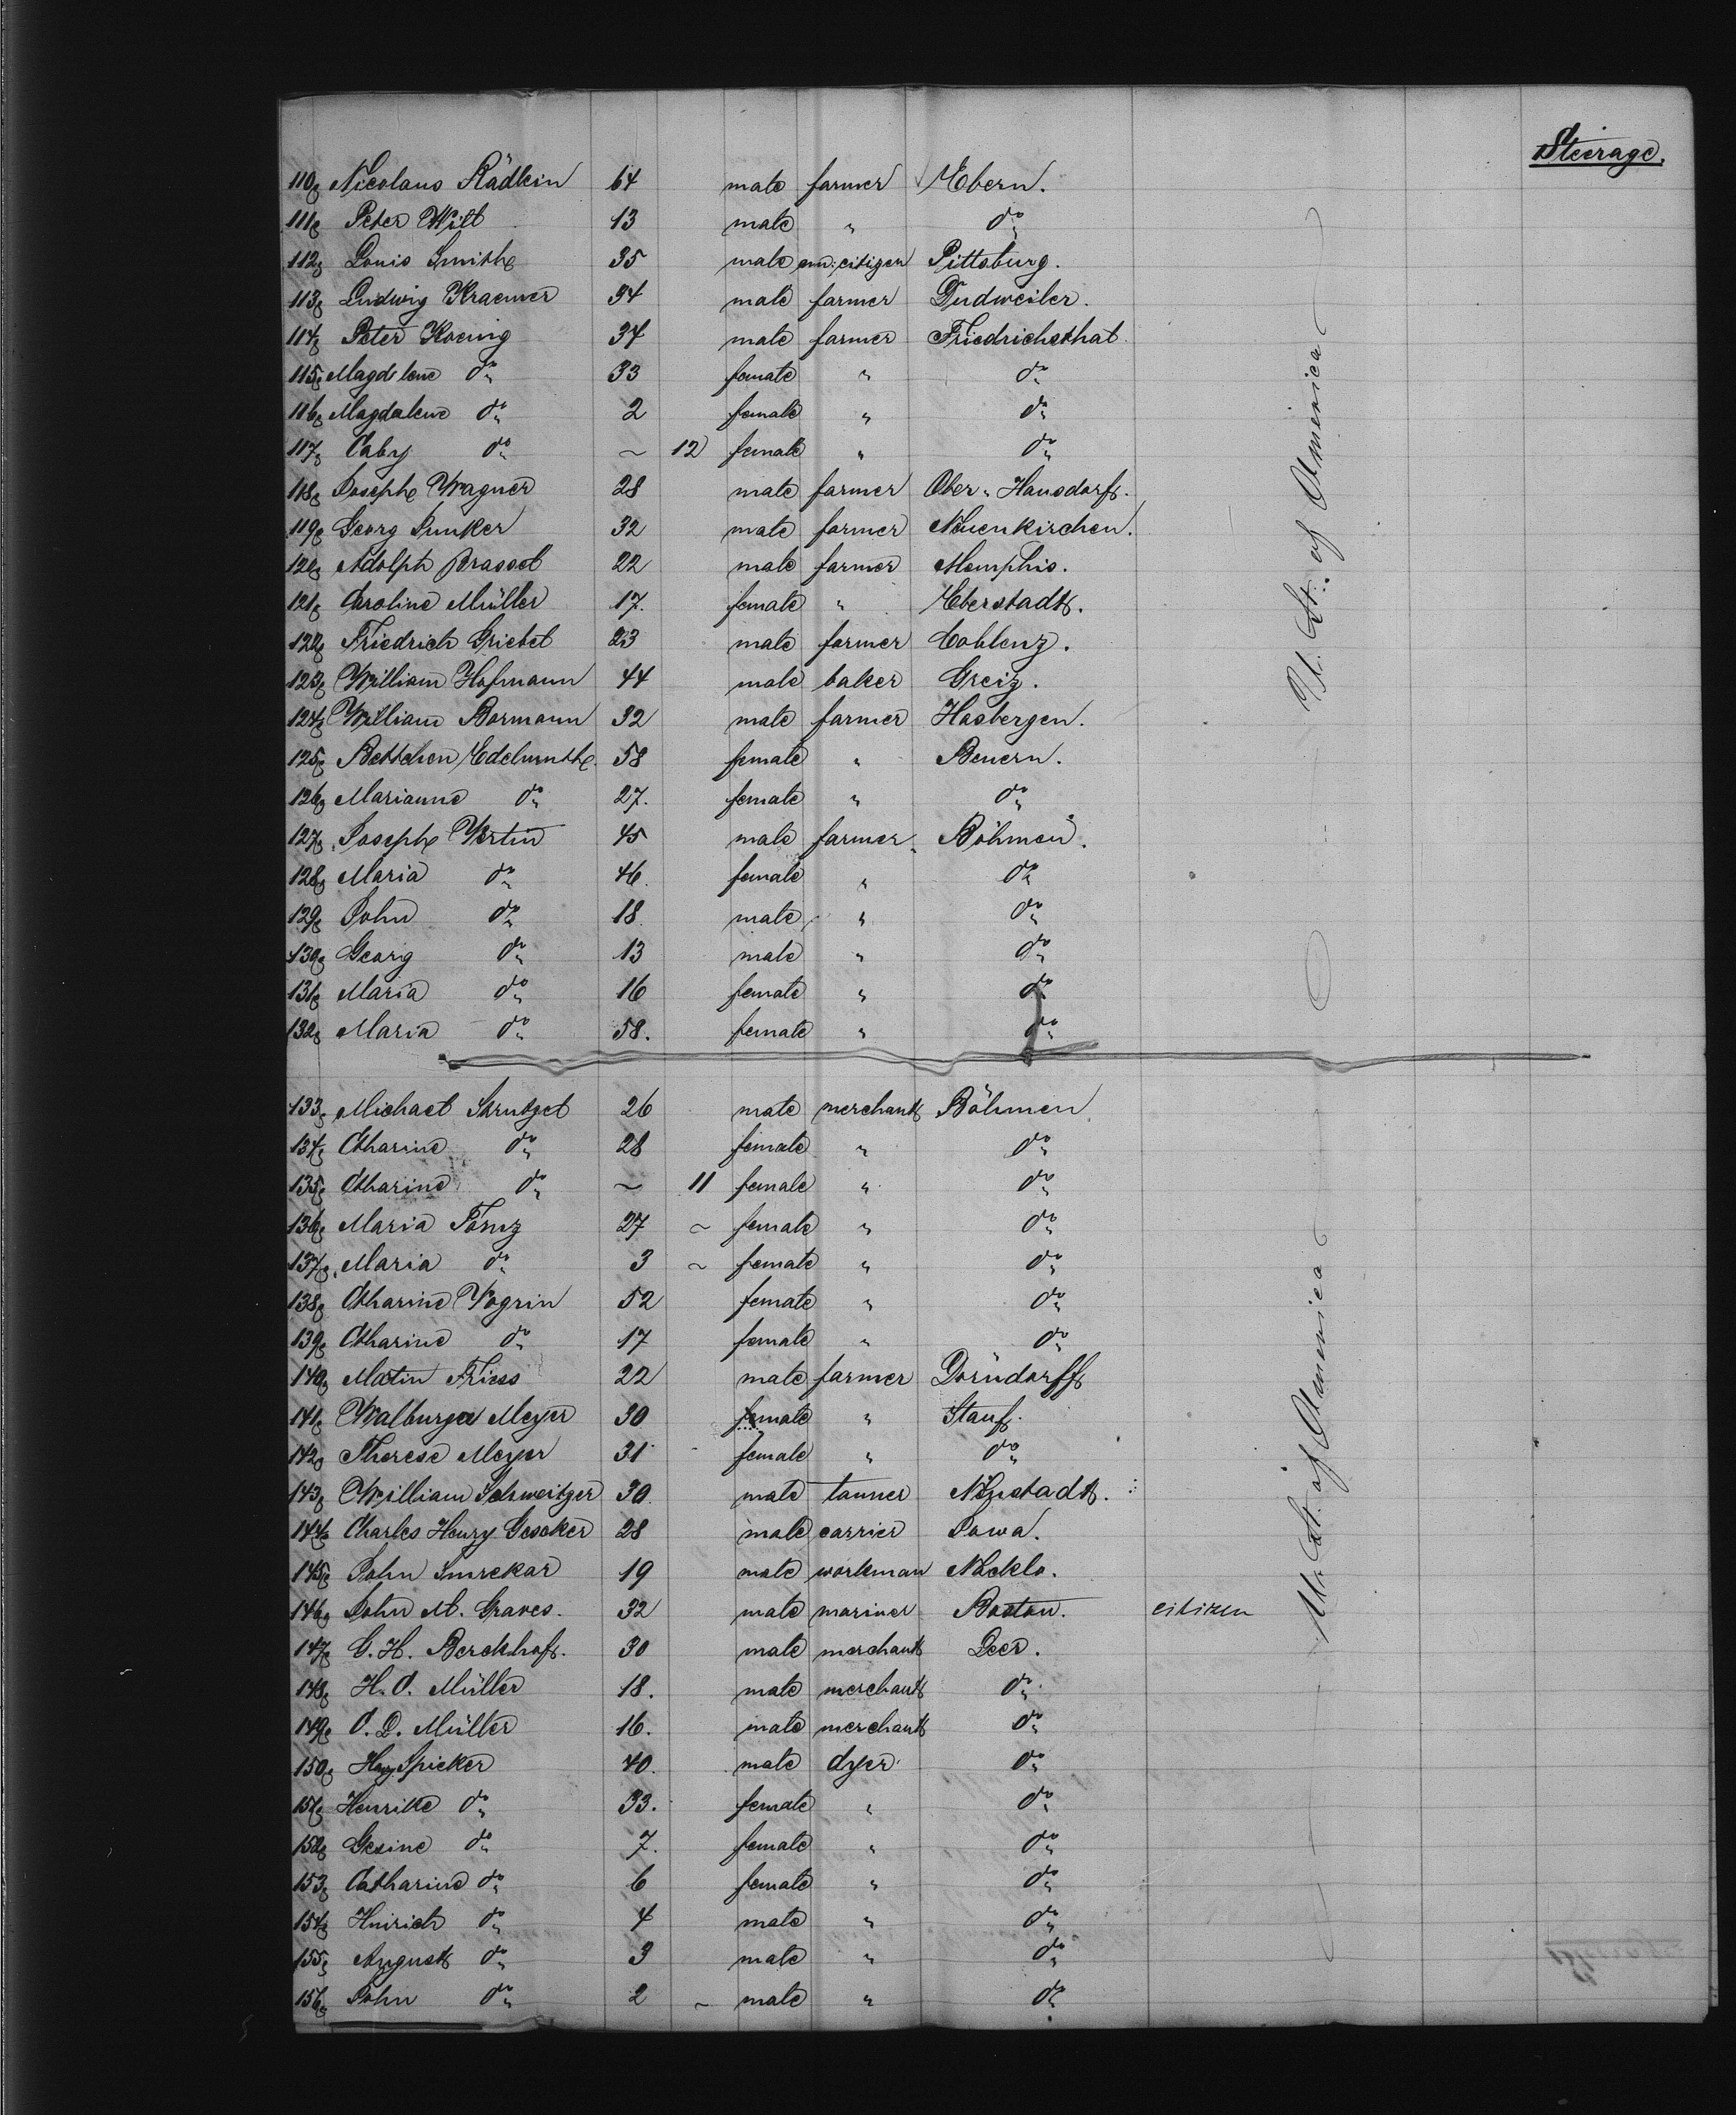 Steerage.
110 Nicolaus Rädlein 64 male farmer Ebern.
111 Peter Will 13 male " do
112 Louis Smith 35 male am: citizen Pittsburg.
113 Ludwig Kraemer 34 male farmer Dudweiler.
114 Peter Koenig 37 male farmer Friedrichsthal
115 Magdalene do 33 female " do
116 Magdalene do 2 female " do
117 Caby do ~ 12 female " do
118 Joseph Wagner 28 male farmer Ober-Hausdorf.
119 Georg Junker 32 male farmer Neuenkirchen.
120 Adolph Brassel 22 male farmer Memphis.
121 Caroline Müller 17. female " Eberstadt.
122 Friedrich Griebel 23 male farmer Coblenz.
123 William Hofmann 44 male baker Greiz.
124 William Bormann 32 male farmer Hasbergen.
125 Bettchen Edelmuth 58 female " Beuern.
126 Marianne do 27. female " do
127 Joseph Vertin 45 male farmer Böhmen.
128 Maria do 46. female " do
129 John do 18 male " do
130 Georg do 13 male " do
131 Maria do 16 female " do
132 Maria do 58. female " do
U. St. of America
133 Michael 26 male merchant Böhmen
134 Catharine do 28 female " do
135 Catharine do ~ 11 female " do
136 Maria 27 ~ female " do
137 Maria do 3 ~ female " do
138 Catharine Vogrin 52 female " do
139 Catharine do 17 female " do
140 Matin Friess 22 male farmer Dörndorff
141 Walburga Meyer 30 female " Stauf.
142 Therese Meyer 31 female " do
143 William Schweitzer 30. male tanner Neustadt.
144 Charles Henry Gesoker 28 male carrier Iowa.
145 John Smrekar 19 male workman Naklo.
146 John M. Graves. 32 male mariner Boston. citizen
147 G. H. Berckhof. 30 male merchant Leer.
148 H. O. Müller 18. male merchant do
149 O. D. Müller 16. male merchant do
150 Hey Spieker 40. male dyer do
151 Henritte do 33. female " do
152 Gesine do 7. female " do
153 Catharine do 6 female " do
154 Hinrich do 4 male " do
155 August do 3 male " do
156 John do 2 ~ male " do
U. St. of America